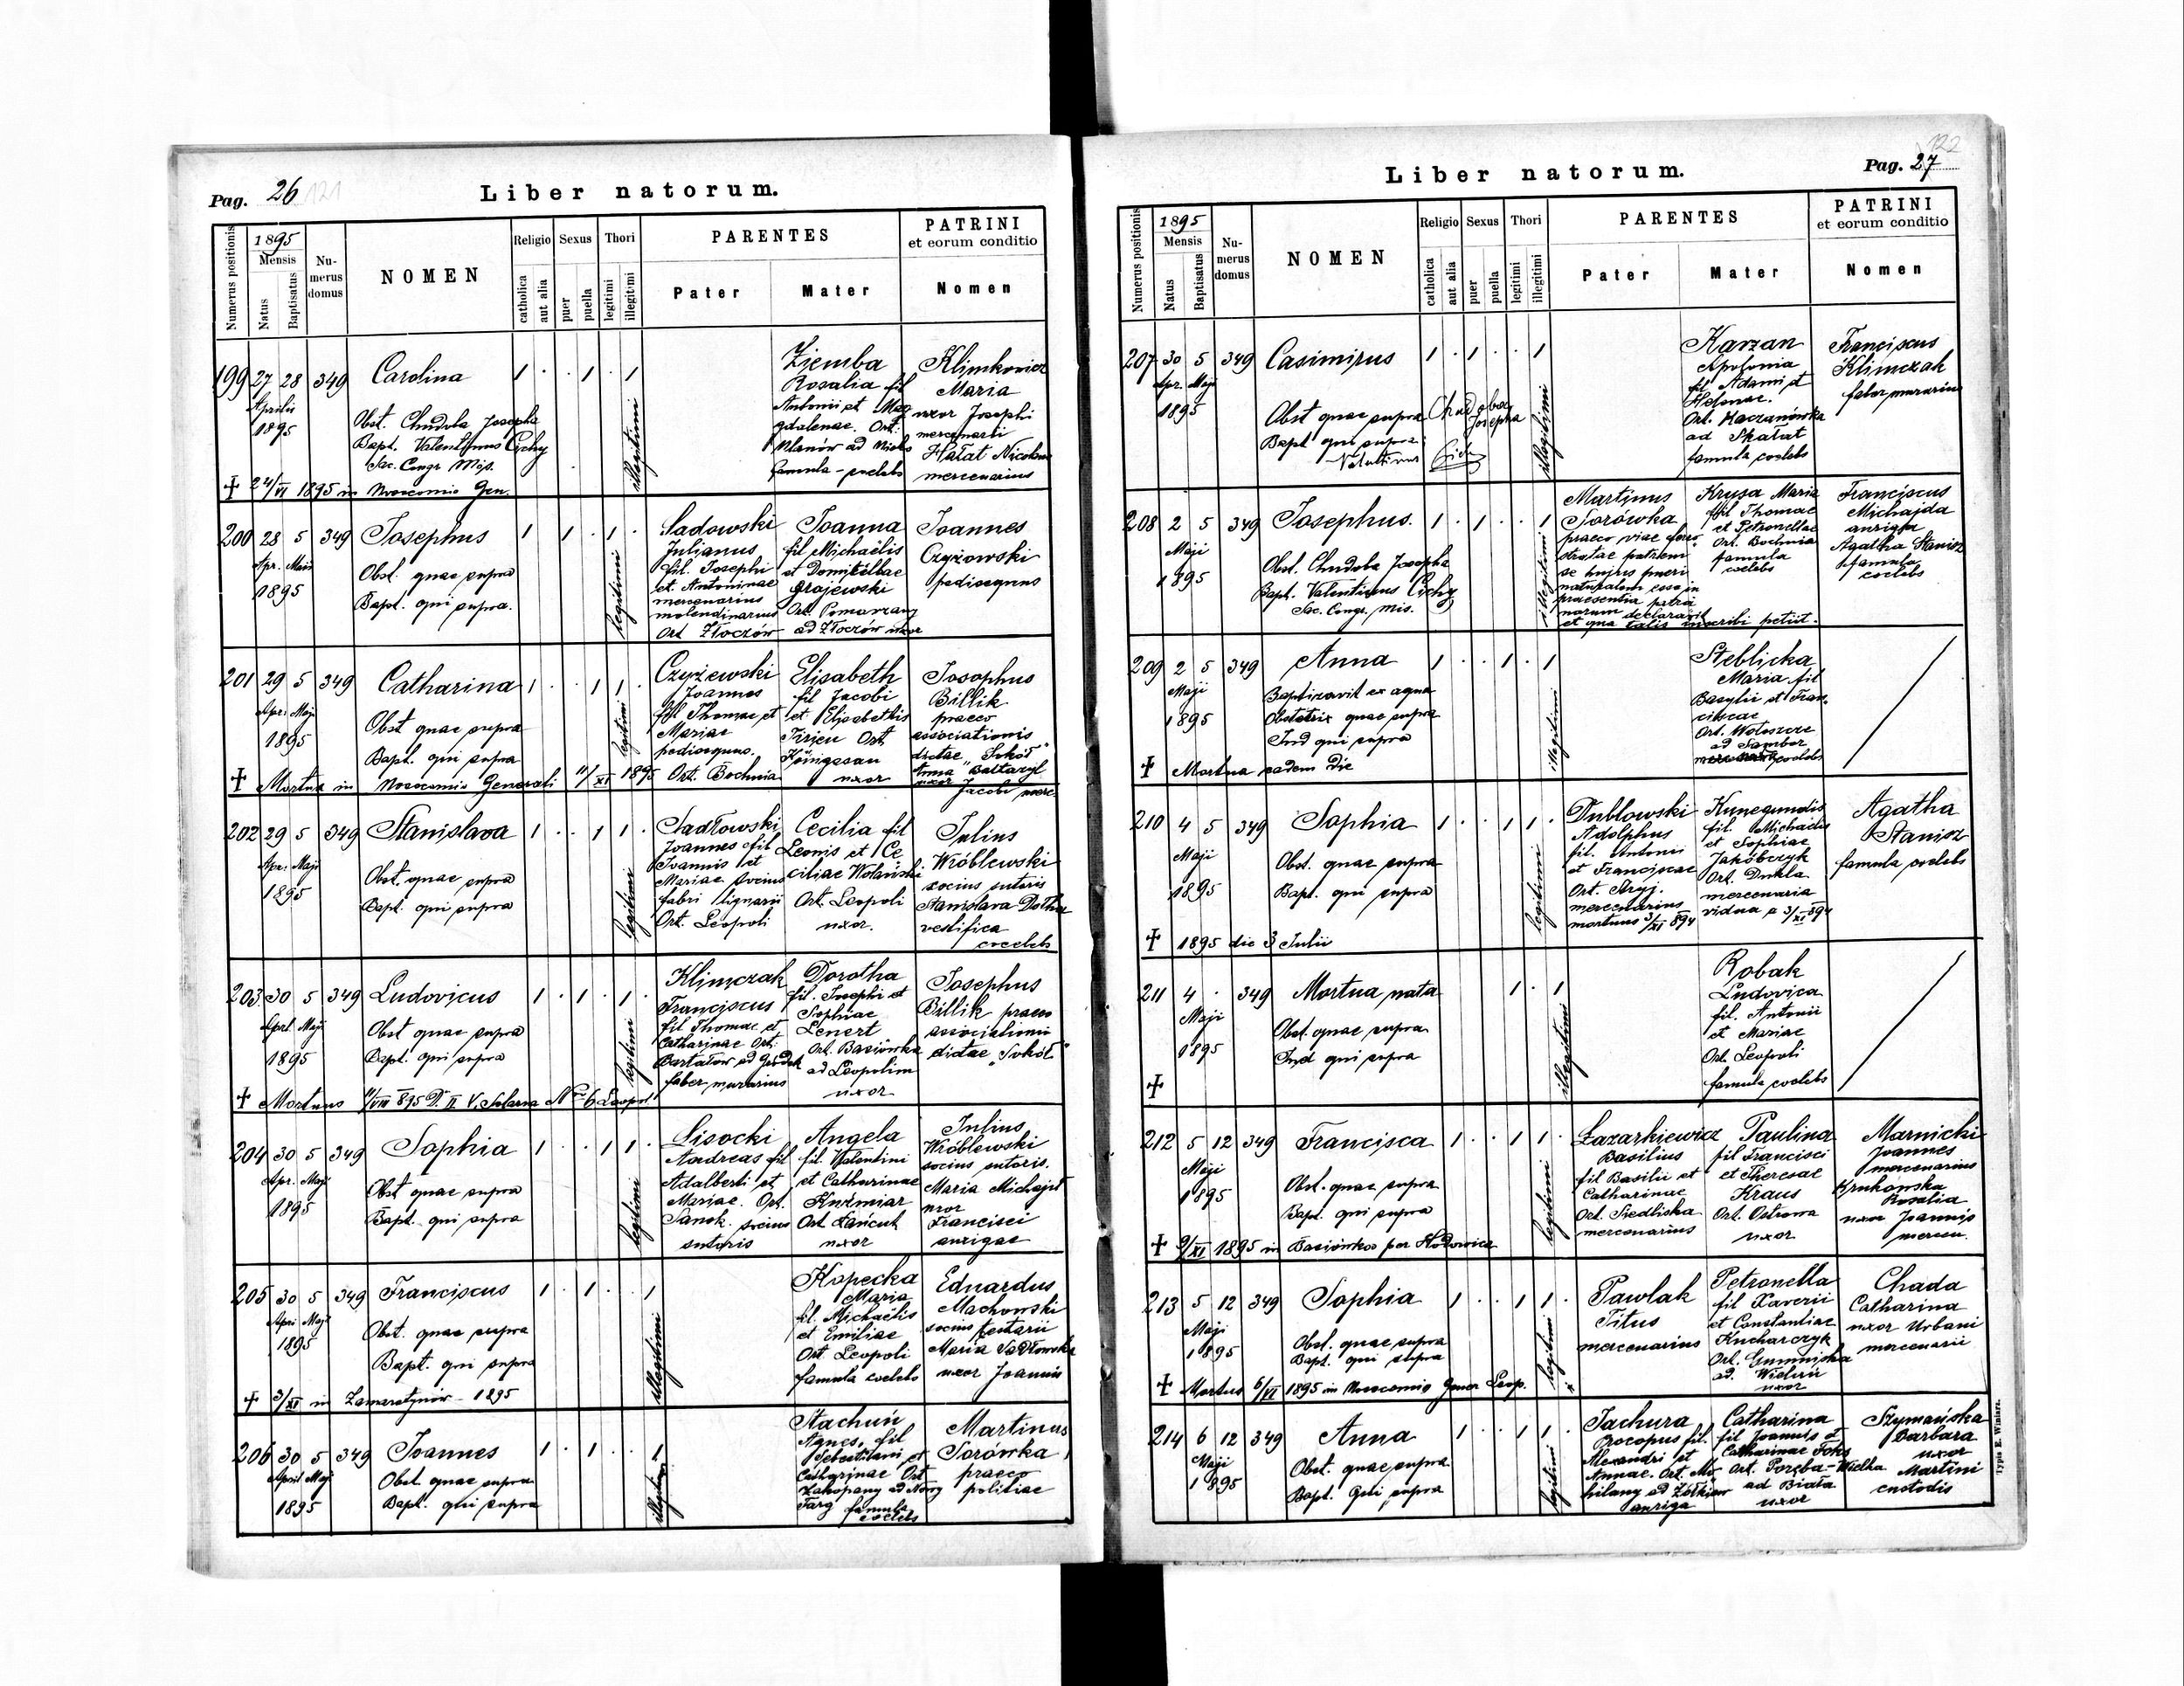 Pag. 26 121
Liber natorum.
Numerus positionis
1895
Mensis
Natus
Baptisatus
Nu-
merus
domus
NOMEN
Religio
catholica
aut alia
Sexus
puer
puella
Thori
legitimi
illegitimi
PARENTES
Pater
Mater
PATRINI
et eorum conditio
Nomen
199 27 28 349 Carolina 1 . . 1 . 1
Aprilis
1895
Obst. Chudoba Josepha
Bapt. Valentinus Cichy
Sac. Congr. Mis.
illegitimi
Ziemba
Rosalia fil
Antonii et Mag
gdalenae. Ort:
famula - coelebs
Klimkowicz
Maria
uxor Josephi
mercenarii
Hałat Nicolaus
mercenarius
+ 24/VI 1895 in Nosocomio Gen.
200 28 5 349 Josephus 1 . 1 . 1 .
Apr. Maji
1895
Obst. quae supra
Bapt. qui supra.
legitimi
Sadowski
Julianus
fil. Josephi
et Antoninae
mercenarius
molendinarius
Ort Złoczów
Joanna
fil Michaëlis
et Domicellae
Grajewski
Ort. Pomorzany
ad Złoczów uxor
Joannes
Czyżowski
pedisequus
201 29 5 349 Catharina 1 . . 1 1 .
Apr. Maji
1895
Obst quae supra
Bapt. qui supra
legitimi
Czyżewski
Joannes
fil Thomae et
Mariae
pedisequus.
Ort. Bochnia
Elisabeth
fil Jacobi
et Elisabethis
Ort
Königsau
uxor
Josephus
Billik
praeco
associationis
dictae "Sokół"
Anna Baltazyl
uxor Jacobi merc.
+ Mortua in Nosocomio Generali 11/XI 1895
202 29 5 349 Stanislava 1 . . 1 1 .
Apr. Maji
1895
Obst. quae supra
Bapt. qui supra
legitimi
Sadłowski
Joannes fil
Joannis et
Mariae socius
fabri lignarii
Ort. Leopoli
Cecilia fil
Leonis et Ce
ciliae Wolański
Ort. Leopoli
uxor.
Julius
Wróblewski
socius sutoris
Stanislava
vestifica
coelebs
203 30 5 349 Ludovicus 1 . 1 . 1 .
Apr. Maji
1895
Obst quae supra
Bapt. qui supra
legitimi
Klimczak
Franciscus
fil Thomae et
Catharinae Ort:
Bartatow ad Gródek
faber murarius
Dorotha
fil. Josephi et
Sophiae
Lenert
Ort. Basiówka
ad Leopolim
uxor
Josephus
Billik praeco
associationis
dictae "Sokół"
+ Mortuus 11/VIII 895 D. II. V. Solarna No 6 Leopol.
204 30 5 349 Sophia 1 . . 1 1 .
Apr. Maji
1895
Obst quae supra
Bapt. qui supra
legitimi
Lisocki
Andreas fil
Adalberti et
Mariae. Ort.
Sanok. socius
sutoris
Angela
fil. Valentini
et Catharinae
Kuźniar
Ort Łańcut
uxor
Julius
Wróblewski
socius sutoris.
Maria
uxor
Francisci
aurigae
205 30 5 349 Franciscus 1 . 1 . . 1
Apr. Maji
1895
Obst. quae supra
Bapt. qui supra
illegitimi
Kopecka
Maria
fil. Michaëlis
et Emiliae
Ort Leopoli
famula coelebs
Eduardus
Machowski
socius
Maria Sadłowska
uxor Joannis
+ 3/XI in Zamarstynów 1895
206 30 5 349 Joannes 1 . 1 . . 1
April Maji
1895
Obst quae supra
Bapt. qui supra
illegitimi
Stachuń
Agnes, fil
Sebastiani et
Catharinae Ort
Zakopany ad Nowy
Targ famula
coelebs
Martinus
Sorówka
praeco
politiae
122
Pag. 27
Liber natorum.
Numerus positionis
1895
Mensis
Natus
Baptisatus
Nu-
merus
domus
NOMEN
Religio
catholica
aut alia
Sexus
puer
puella
Thori
legitimi
illegitimi
PARENTES
Pater
Mater
PATRINI
et eorum conditio
Nomen
207 30 5 349 Casimirus 1 . 1 . . 1
Apr. Maji
1895
Obst quae supra Chudobay Josepha
Bapt qui supra
Valentinus Cichy
illegitimi
Karzan
Apolonia
fil Adami et
Helenae.
Ort. Kaczanówka
ad Skałat
famula coelebs
Franciscus
Klimczak
faber murarius
208 2 5 349 Josephus. 1 . 1 . . 1
Maji
1895
Obst. Chudoba Josepha
Bapt. Valentinus Cichy
Sac. Congr. mis.
illegitimi
Martinus
Sorówka
praeco viae
stratae patrem
se hujus pueri
naturalem esse in
praesentia patri
norum declaravit
et qua talis inscribi petiit.
Krysa Maria
fil Thomae
et Petronellae
Ort. Bochnia
famula
coelebs
Franciscus
Michajda
auriga
Agatha Stanisz
famula
coelebs
209 2 5 349 Anna 1 . . 1 . 1
Maji
1895
Baptizavit ex aqua
Obstetrix quae supra
Ind qui supra
illegitimi
Steblicka
Maria fil
Basylii et Fran-
ciscae
Ort. Wołoszcze
ad Sambor
coelebs
+ Mortua eadem die
210 4 5 349 Sophia 1 . . 1 1 .
Maji
1895
Obst. quae supra
Bapt. qui supra
legitimi
Dublowski
Adolphus
fil. Antonii
et Franciscae
Ort. Stryj.
mercenarius
mortuus 3/XI 894
Kunegundis
fil. Michaelis
et Sophiae
Jakóbczyk
Ort. Dukla
mercenaria
vidua a 3/XI 894
Agatha
Stanisz
famula coelebs
+ 1895 die 3 Julii
211 4 . 349 Mortua nata 1 . 1
Maji
1895
Obst. quae supra
Ind qui supra
illegitimi
Robak
Ludovica
fil. Antonii
et Mariae
Ort. Leopoli
famula coelebs
+
212 5 12 349 Francisca 1 . . 1 1 .
Maji
1895
Obst. quae supra
Bapt. qui supra
legitimi
Łazarkiewicz
Basilius
fil Basilii et
Catharinae
Ort. Siedliska
mercenarius
Paulina
fil Francisci
et Theresae
Kraus
Ort. Ostrowa
uxor
Marnicki
Joannes
mercenarius
Krukowska
Rosalia
uxor Joannis
mercen.
+ 9/XI 1895 in Basiówka per Hodowica
213 5 12 349 Sophia 1 . . 1 1 .
Maji
1895
Obst. quae supra
Bapt. qui supra
legitimi
Pawlak
Titus
mercenarius
Petronella
fil Xaverii
et Constantiae
Kucharczyk
Ort.
ad. Wieluń
uxor
Chada
Catharina
uxor Urbani
mercenarii
+ Mortua 6/VI 1895 in Nosocomio Gener Leop.
214 6 12 349 Anna 1 . . 1 1 .
Maji
1895
Obst. quae supra
Bapt. Qui supra
legitimi
Jachura
Procopus fil.
Alexandri et
Annae. Ort. Mo-
hilany ad Żółkiew
auriga
Catharina
fil Joannis et
Catharinae Foks
Ort. Poręba-Wielka
ad Biała
uxor
Szymańska
Barbara
uxor
Martini
custodis
Typis E. Winiarz.